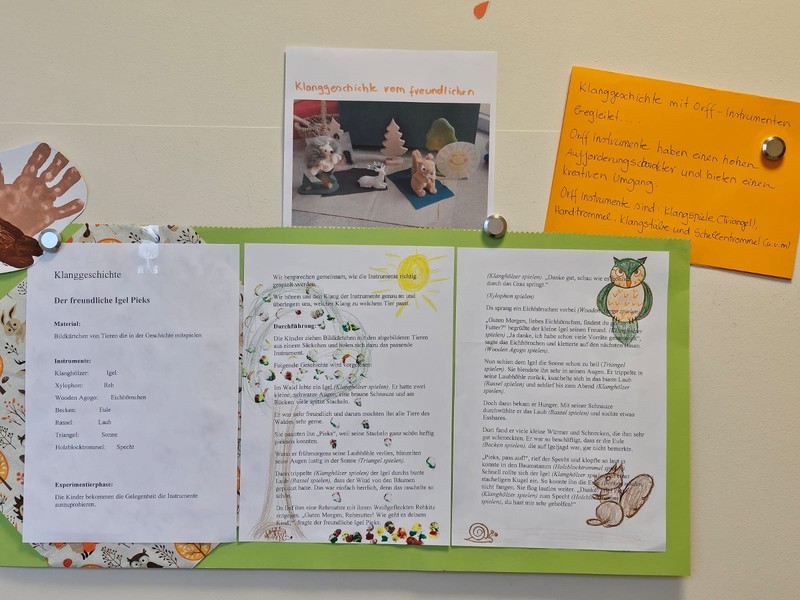 Klanggeschichte vom freundlichen
Klanggeschichte mit Orff-Instrumenten
Begleitet....
Orff Instrumente haben einen hohen
Aufforderungscharakter und bieten einen
kreativen Umgang.
Orff Instumente sind: Klangspiele (Triangel),
Handtrommel, Klangstäbe und Schellentrommel (u.v.m)
Klanggeschichte
Der freundliche Igel Pieks
Material:
Bildkärtchen von Tieren die in der Geschichte mitspielen
Instrumente:
Klanghölzer: Igel
Xylophon: Reh
Wooden Agogo: Eichhörnchen
Becken: Eule
Rassel: Laub
Triangel: Sonne
Holzblocktrommel: Specht
Experimentierphase:
Die Kinder bekommen die Gelegenheit die Instrumente
auszuprobieren.
Wir besprechen gemeinsam, wie die Instrumente richtig
gespielt werden.
Wir hören uns den Klang der Instrumente genau an und
überlegen uns, welcher Klang zu welchem Tier passt.
Durchführung:
Die Kinder ziehen Bildkärtchen mit den abgebildeten Tieren
aus einem Säckchen und holen sich dazu das passende
Instrument.
Folgende Geschichte wird vorgelesen:
Im Wald lebte ein Igel (Klanghölzer spielen). Er hatte zwei
kleine, schwarze Augen, eine braune Schnauze und am
Rücken viele spitze Stacheln.
Er war sehr freundlich und darum mochten ihn alle Tiere des
Waldes sehr gerne.
Sie nannten ihn „Pieks“, weil seine Stacheln ganz schön heftig
pieksen konnten.
Wenn er frühmorgens seine Laubhöhle verließ, blinzelten
seine Augen lustig in der Sonne (Triangel spielen).
Dann trippelte (Klanghölzer spielen) der Igel durchs bunte
Laub (Rassel spielen), dass der Wind von den Bäumen
gepustet hatte. Das war einfach herrlich, denn das raschelte so
schön.
Da lief ihm eine Rehmutter mit ihrem Weißgefleckten Rehkitz
entgegen. „Guten Morgen, Rehmutter! Wie geht es deinem
Kind?“ fragte der freundliche Igel Pieks
(Klanghölzer spielen). „Danke gut, schau wie es
durch das Gras springt.“
(Xylophon spielen)
Da sprang ein Eichhörnchen vorbei (Wooden
„Guten Morgen, liebes Eichhörnchen, findest du
Futter?“ begrüßte der kleine Igel seinen Freund. (Klanghölzer
spielen) „Ja danke, ich habe schon viele Vorräte
sagte das Eichhörnchen und kletterte auf den nächsten Baum
(Wooden Agogo spielen).
Nun schien dem Igel die Sonne schon zu hell (Triangel
spielen). Sie blendete ihn sehr in seinen Augen. Er trippelte in
seine Laubhöhle zurück, kuschelte sich in das bunte Laub
(Rassel spielen) und schlief bis zum Abend (Klanghölzer
spielen).
Doch dann bekam er Hunger. Mit seiner Schnauze
durchwühlte er das Laub (Rassel spielen) und suchte etwas
Essbares.
Dort fand er viele kleine Würmer und Schnecken, die ihm sehr
gut schmeckten. Er war so beschäftigt, dass er die Eule
(Becken spielen), die auf Igeljagd war, gar nicht bemerkte.
„Pieks, pass auf!“, rief der Specht und klopfte so laut er
konnte in den Baumstamm (Holzblocktrommel spielen).
Schnell rollte sich der Igel (Klanghölzer spielen)
stacheligen Kugel ein. So konnte ihn die Eule
nicht fangen. Sie flog lautlos weiter. „Danke“
(Klanghölzer spielen) zum Specht (Holzblocktrommel
spielen), du hast mir sehr geholfen!“